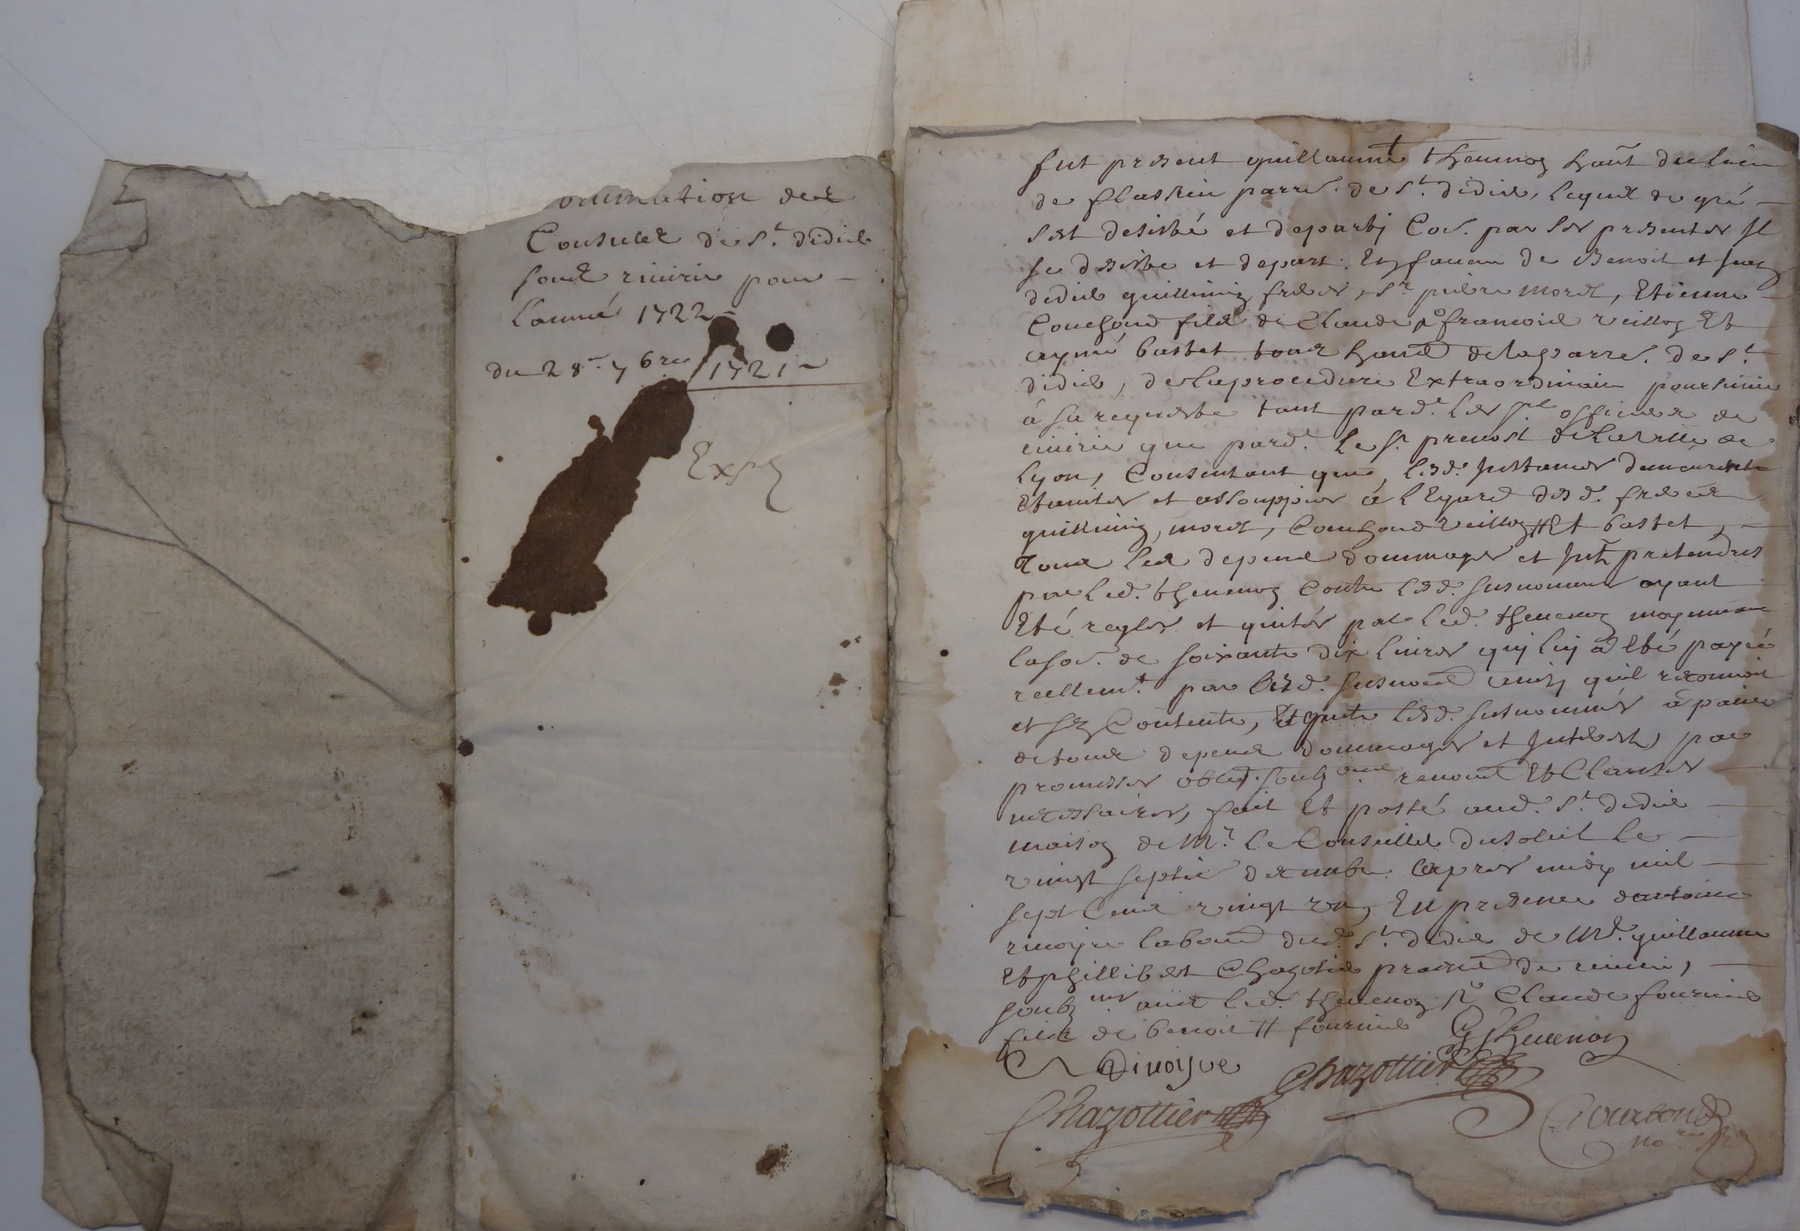 omination des
Consulz de St. didier
soubz riverie pour
l'année 1722
du 28e 7bre 1721
Exp
fut present guillaume thevenon habt. du lieu
de flassieu parre. de St. didier, lequel de gré
sest desisté et departy Coe. par ses presentes Il
se desiste et depart. En faveur de Benoit et Jean
didier guillimin freres, Sr. pierre morel, Etienne
Couchoud filz de Claude françois veillon Et
aymé bastet tous habt. de laparre. de St.
didier, de laprocedure Extraordinaire poursuivie
à sa requeste tant pard. les officiers de
riverie que pard. le Sr. prevost de la ville de
Lyon, Consentant que lesd. Instances demeurent
Etaintes et assouppies à l'Egard desd. freres
guillimin, morel, Couchoud veillon # Et bastet,
Tous les depens dommages et Intz. pretendus
par led. thevenon Contre lesd. susnommes ayant
Eté regles et quités par led. thevenon moyennant
la so. de soixante dix livres quy luy a Eté payée
reellemt. par lesd. susnommés ainsy quil reconnoit
et sen Contente, Et quite lesd. susnommés
de tous depens dommages et Interest, par
promesses oblig. soubz renonc. Et Clauses
necessaires, fait Et passé aud. St. didier
maison de Mr. le Conseiller dusoleil le
vingt septie. decembre apres midy mil
sept Cens vingt un, En presence dantoine
labour. dud. St. didier de Me. guillaume
Et phillibert Chazottier de riverie,
soubz. avec led. thevenon Claude fournier
filz de benoit # fournier G Thevenon
Chazottier
Chazottier
nore.